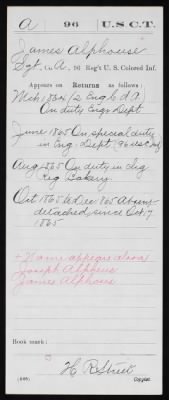 A 96 U.S.C.T.
James Alphouse
Sgt, Co. A, 96 Reg't U. S. Colored Inf.
Appears on Returns as follows:
On duty Engr Dept
June 1865 On special duty
in Eng. Dept (96 USC Inf
Aug 1865 On duty in
Reg Bakery
Oct 1865 to Dec 1865 Absent
detached since Oct 17
1865
+ Name appears also as
Joseph Alpheus
James Alphons
Book mark:
(646)
Copyist.